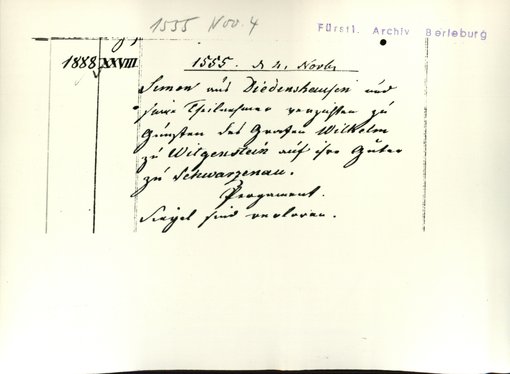 1555 Nov. 4
Fürstl. Archiv Berleburg
1888 XXVIII 1555. d. 4. Novbr.
Simon aus Diedenshausen und
seine Theilnehmer verzichten zu
Gunsten des Grafen Wilhelm
zu Witgenstein auf ihre Güter
zu Schwarzenau.
Pergament.
Siegel sind verloren.